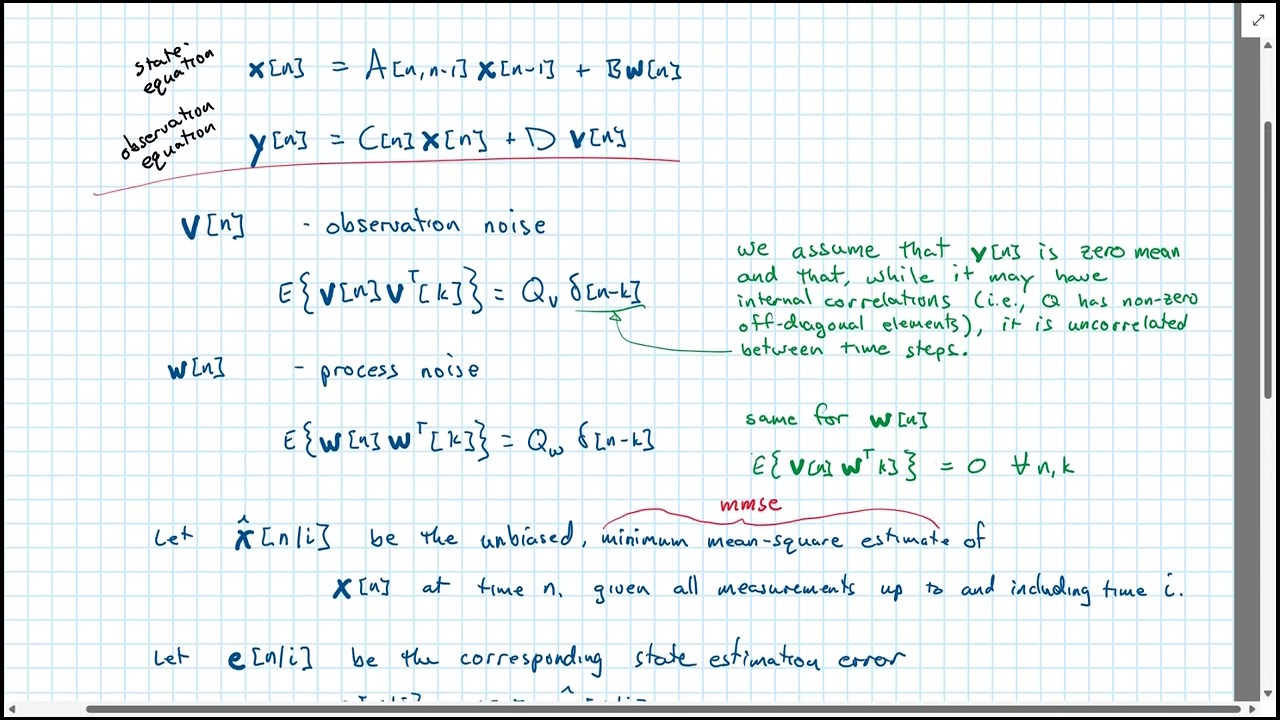 state equation x[n] = A[n,n-1] x[n-1] + Bw[n]
observation equation y[n] = C[n] x[n] + D v[n]
v[n] - observation noise
E{v[n] vᵀ[k]} = Qᵥ δ[n-k]
we assume that v[n] is zero mean
and that, while it may have
internal correlations (i.e., Q has non-zero
off-diagonal elements), it is uncorrelated
between time steps.
w[n] - process noise
E{w[n] wᵀ[k]} = Q_w δ[n-k]
same for w[n]
E{v[n] wᵀk]} = 0 ∀ n,k
mmse
Let x̂[n|i] be the unbiased, minimum mean-square estimate of
x[n] at time n, given all measurements up to and including time i.
Let e[n|i] be the corresponding state estimation error